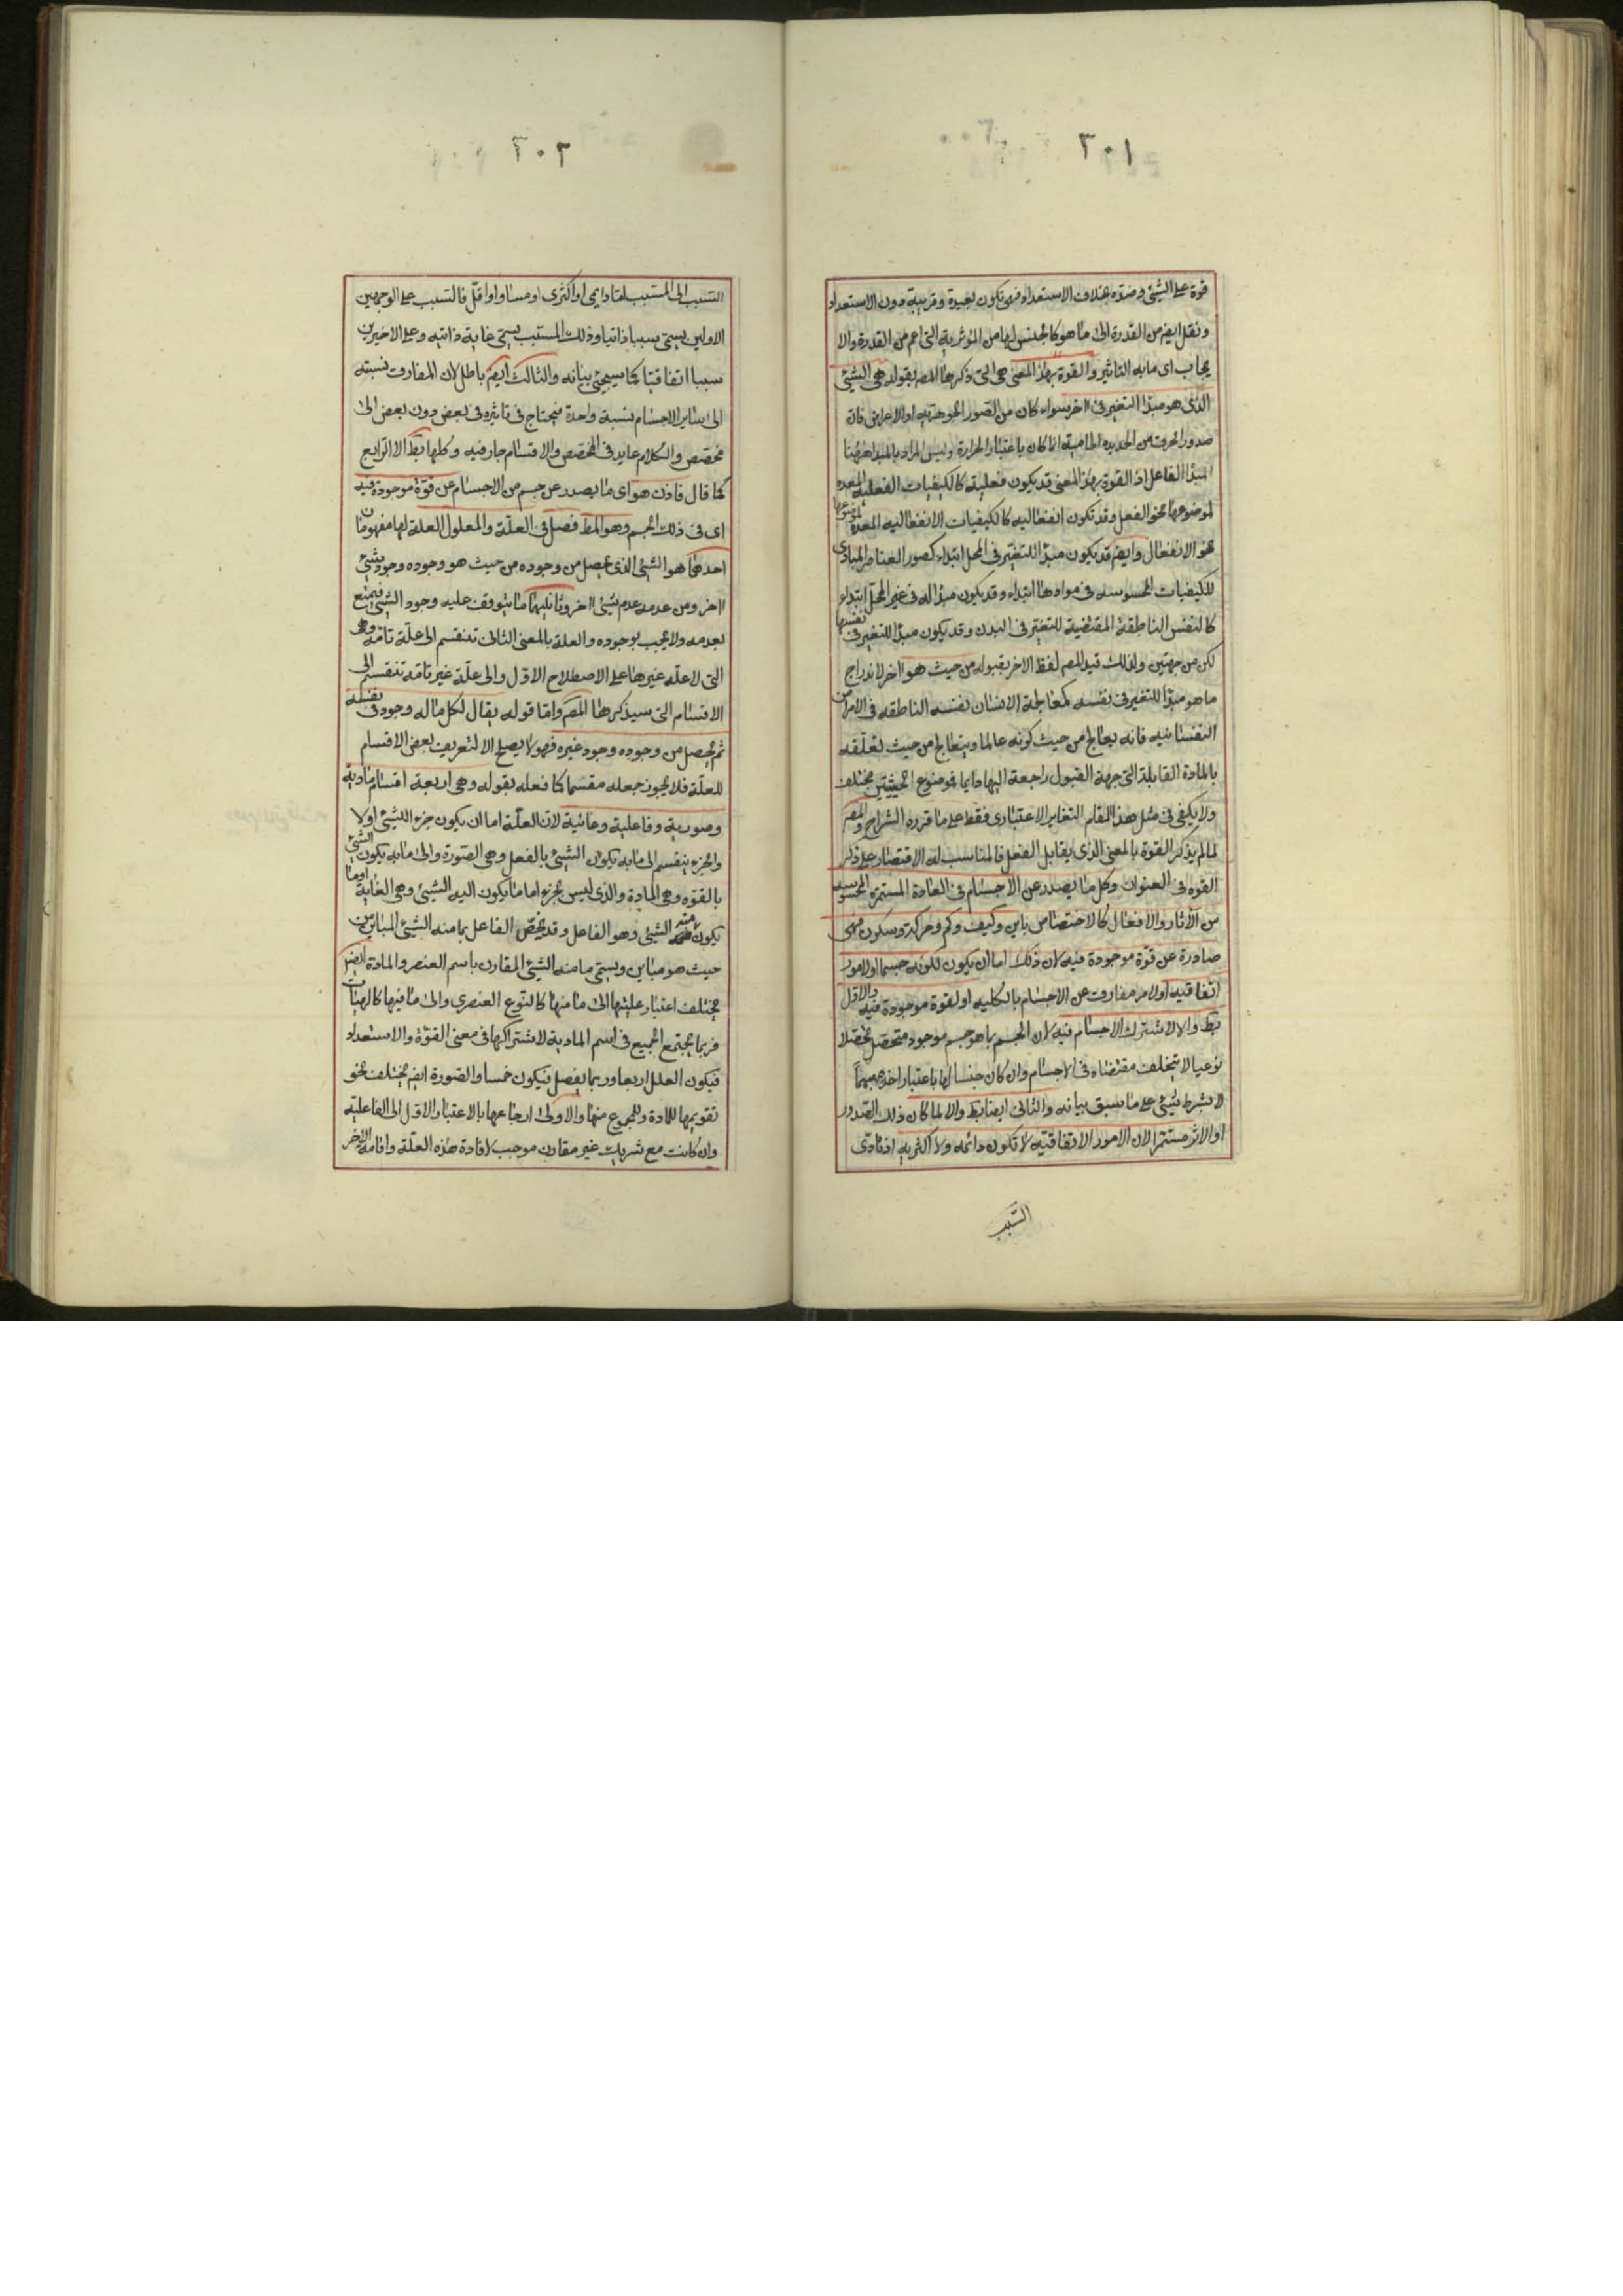 ٣٠١
قوة على الشيئ وضده بخلاف الاستعداد فهى تكون بعيدة وقريبة دون الاستعداد
ونقل ايضم من القدرة الى ما هو كالجنس لها من المؤثرية التى اعم من القدرة والا
يجاب اى ما به التاثير والقوة بهذا المعنى هى التى ذكرها المصم بقوله هى الشيئ
الذى هو مبدا التغير فى اخر سواء كان من الصور الجوهرية او الاعراض فان
صدور الحرق من الحديدة الحامية انما كان باعتبار الحرارة وليس المراد بالمبدا ههنا
المبدا الفاعل اذ القوة بهذا المعنى قد يكون فعلية كالكيفيات الفعلية المعده
لموضوعها نحو الفعل وقد تكون انفعاليه كالكيفيات الانفعاليه المعدة لموضوعها
نحو الانفعال وايضم قد يكون مبدا للتغير فى المحل ابتداء كصور العناصر المبادى
للكيفيات المحسوسه فى موادها ابتداء وقد يكون مبدا له فى غير المحل ابتداء
كالنفس الناطقة المقتضية للتغير فى البدن وقد يكون مبدا للتغير فى نفسها
لكن من جهتين ولذلك قيد المصم لفظ الاخر بقبوله من حيث هو اخر لاندراج
ما هو مبدا للتغير فى نفسه كمعالجة الانسان نفسه الناطقه فى الامراض
النفسانيه فانه يعالج من حيث كونه عالما ويتعالج من حيث تعلقه
بالمادة القابلة التى جهة القبول راجعة اليها دايما فموضوع الحيثيتين مختلف
ولا يكفى فى مثل هذا المقام التغاير الاعتبارى فقط على ما قرره الشراح والمصم
لما لم يذكر القوة بالمعنى الذى يقابل الفعل فالمناسب له الاقتصار على ذكر
القوه فى العنوان وكل ما يصدر عن الاجسام فى العادة المستمرة المحسوسه
من الاثار والافعال كالاختصاص باين وكيف وكم وحركة وسكون فهى
صادرة عن قوة موجودة فيه لان ذلك اما ان يكون لكونه جسما او لامور
اتفاقيه او لامر مفارق عن الاجسام بالكليه او لقوة موجودة فيه والاول
بط والا لاشترك الاجسام فيه لان الجسم بما هو جسم موجود متحصل تحصلا
نوعيا لا يتخلف مقتضاه فى الاجسام وان كان جنسا لها باعتبار اخذه مبهما
لا بشرط شيئ على ما سبق بيانه والثانى ايضا بط والا لما كان ذلك الصدور
او الاثر مستمرا لان الامور الاتفاقيه لا تكون دائمه ولا اكثريه اذ تادى
السبب
٣٠٢
السبب الى المسبب اما دايمى او اكثرى او مساو او اقل فالسبب على الوجهين
الاولين يسمى سببا ذاتيا وذلك المسبب يسمى غاية ذاتيه وعلى الاخيرين
سببا اتفاقيا كما سيجئ بيانه والثالث ايضم باطل لان المفارق نسبته
الى ساير الاجسام نسبة واحدة فيحتاج فى تاثيره فى بعض دون بعض الى
مخصص والكلام عايد فى المخصص والاقسام جار فيه وكلها بط الا الرابع
كما قال فاذن هو اى ما يصدر عن جسم من الاجسام عن قوة موجودة فيه
اى فى ذلك الجسم وهو المط فصل فى العلة والمعلول العلة لها مفهومان
احدهما هو الشيئ الذى يحصل من وجوده من حيث هو وجوده وجود شيئ
اخر ومن عدمه عدم شيئ اخر وثانيهما ما يتوقف عليه وجود الشيئ فيمتنع
بعدمه ولا يجب بوجوده والعلة بالمعنى الثانى تنقسم الى علة تامه وهى
التى لا علة غيرها على الاصطلاح الاول والى علة غير تامه تنقسم الى
الاقسام التى سيذكرها المصم واما قوله يقال لكل ما له وجود فى نفسه
ثم يحصل من وجوده وجود غيره فهو لا يصلح الا لتعريف بعض الاقسام
للعلة فلا يجوز جعله مقسما كما فعله بقوله وهى اربعة اقسام مادية
وصورية وفاعلية وغائية لان العلة اما ان يكون جزء للشيئ اولا
والجزء ينقسم الى ما به يكون الشيئ بالفعل وهى الصورة والى ما به يكون الشيئ
بالقوه وهى المادة والذى ليس بجزء اما ما يكون اليه الشيئ وهى الغاية او ما
يكون منه الشيئ وهو الفاعل وقد يخص الفاعل بما منه الشيئ المباين من
حيث هو مباين ويسمى ما منه الشيئ المقارن باسم العنصر والمادة ايضم
يختلف اعتبار عليتها الى ما منها كالنوع العنصرى والى ما فيها كالهيئات
فربما يجتمع الجميع فى اسم المادية لاشتراكها فى معنى القوة والاستعداد
فيكون العلل اربعا وربما يفصل فيكون خمسا والصورة ايضم يختلف نحو
تقويمها للمادة وللمجموع منها والاولى ارجاعها بالاعتبار الاول الى الفاعليه
وان كانت مع شريك غير مقارن موجب لافادة هذه العلة واقامه الاخر